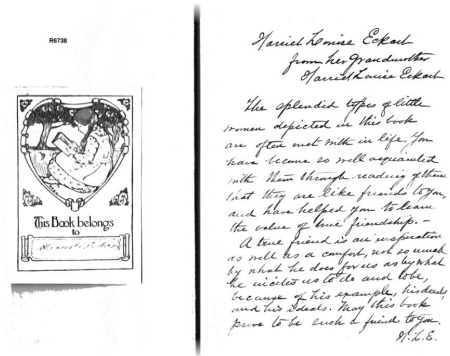 R6738
This Book belongs
to
Harriet Louise Eckart
from her Grandmother
Harriet Louise Eckart
The splendid types of little
women depicted in this book
are often met with in life. You
have become so well acquainted
with them through reading of them
that they are like friends to you,
and have helped you to learn
the value of true friendship. –
A true friend is an inspiration
as well as a comfort, not so much
by what he does for us as by what
he incites us to do and to be,
because of his example, his deeds
and his ideals. May this book
prove to be such a friend to you.
H. L. E.